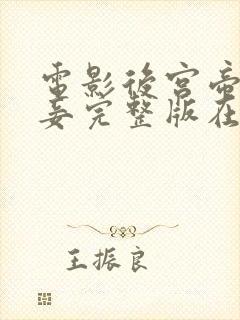 電影後宮帝
妾完整版在
王振良